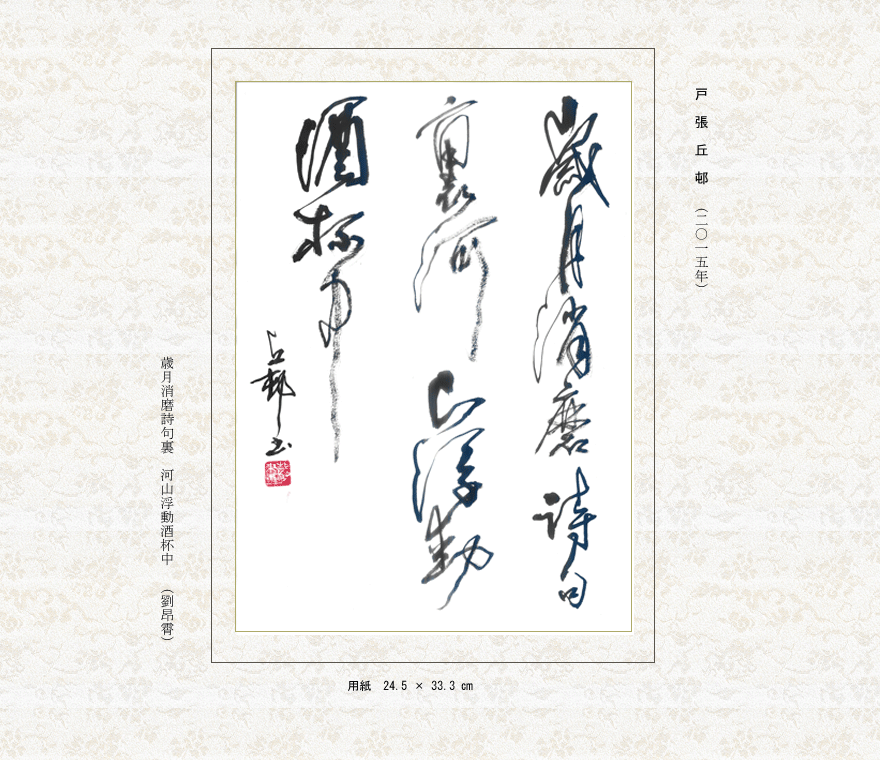 戸張丘邨 (二〇一五年)
歳月消磨詩句
裏河山浮動
酒杯中
丘邨書
歳月消磨詩句裏 河山浮動酒杯中 (劉昂霄)
用紙 24.5 × 33.3 cm